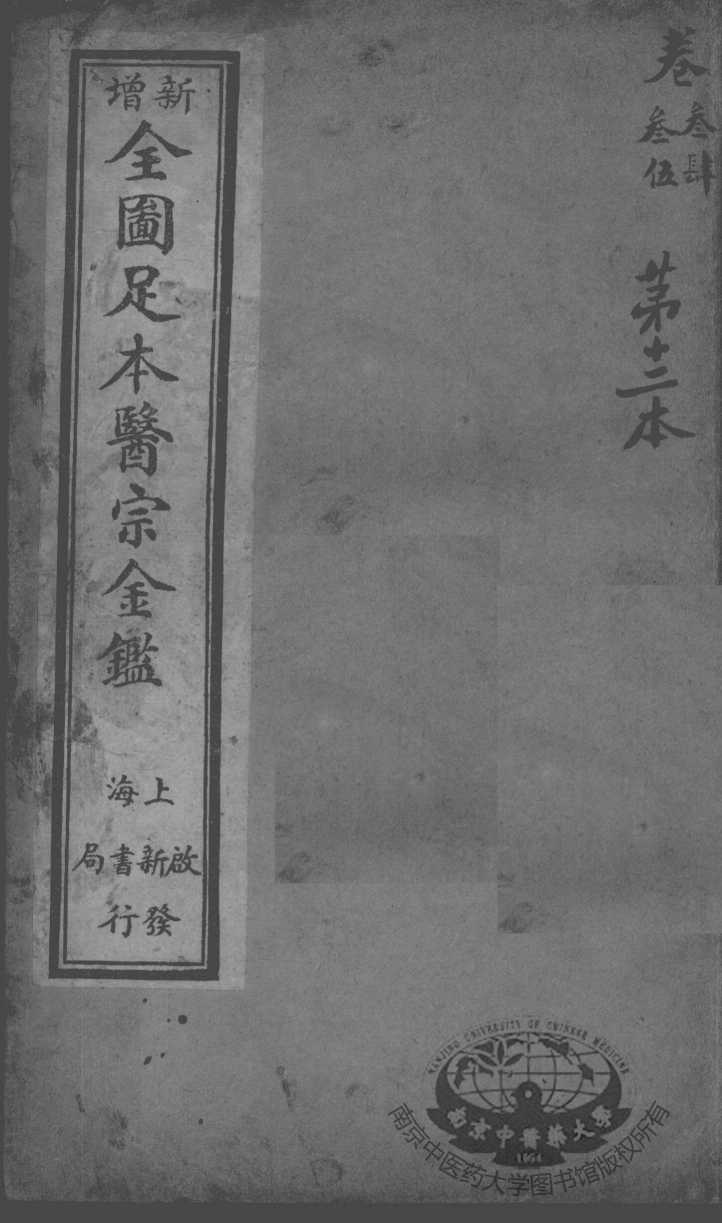 卷
叁肆
叁伍
第十二本
新增
全圖足本醫宗金鑑
上海
啟新書局
發行
NANJING UNIVERSITY OF CHINESE MEDICINE
南京中醫藥大學
南京中医药大学图书馆版权所有